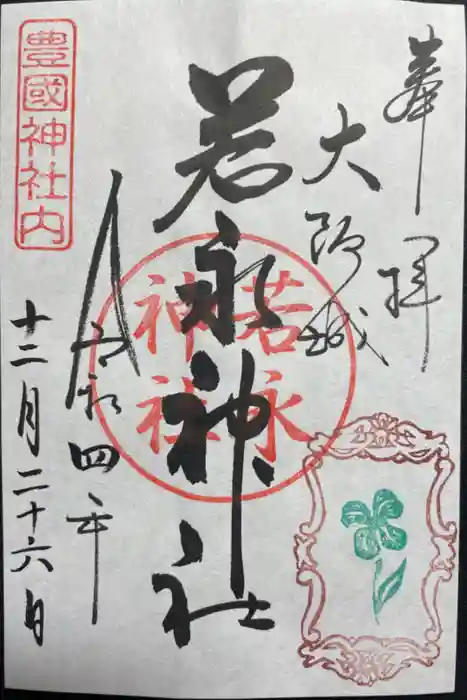 奉拝
大阪城
若永神社
若永
神社
令和四年
十二月二十六日
豊國神社内